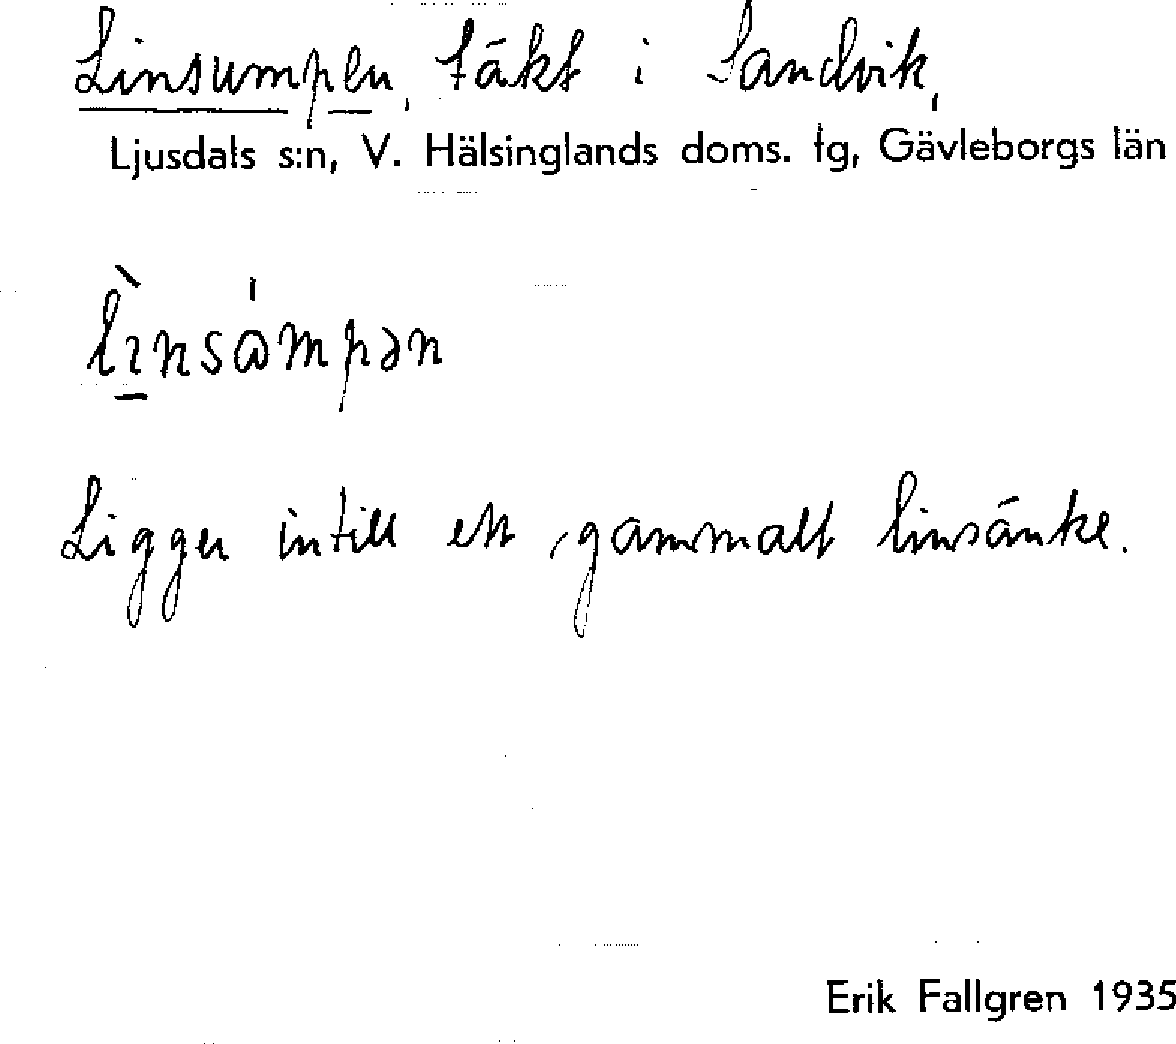 Linsumpen, täkt i Sandvik,
Ljusdals s:n, V. Hälsinglands doms. tg, Gävleborgs län
lìnsω̇mpən
Ligger intill ett gammalt linsänke.
Erik Fallgren 1935